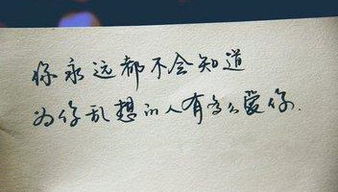 你永远都不会知道
为你乱想的人有多么爱你.